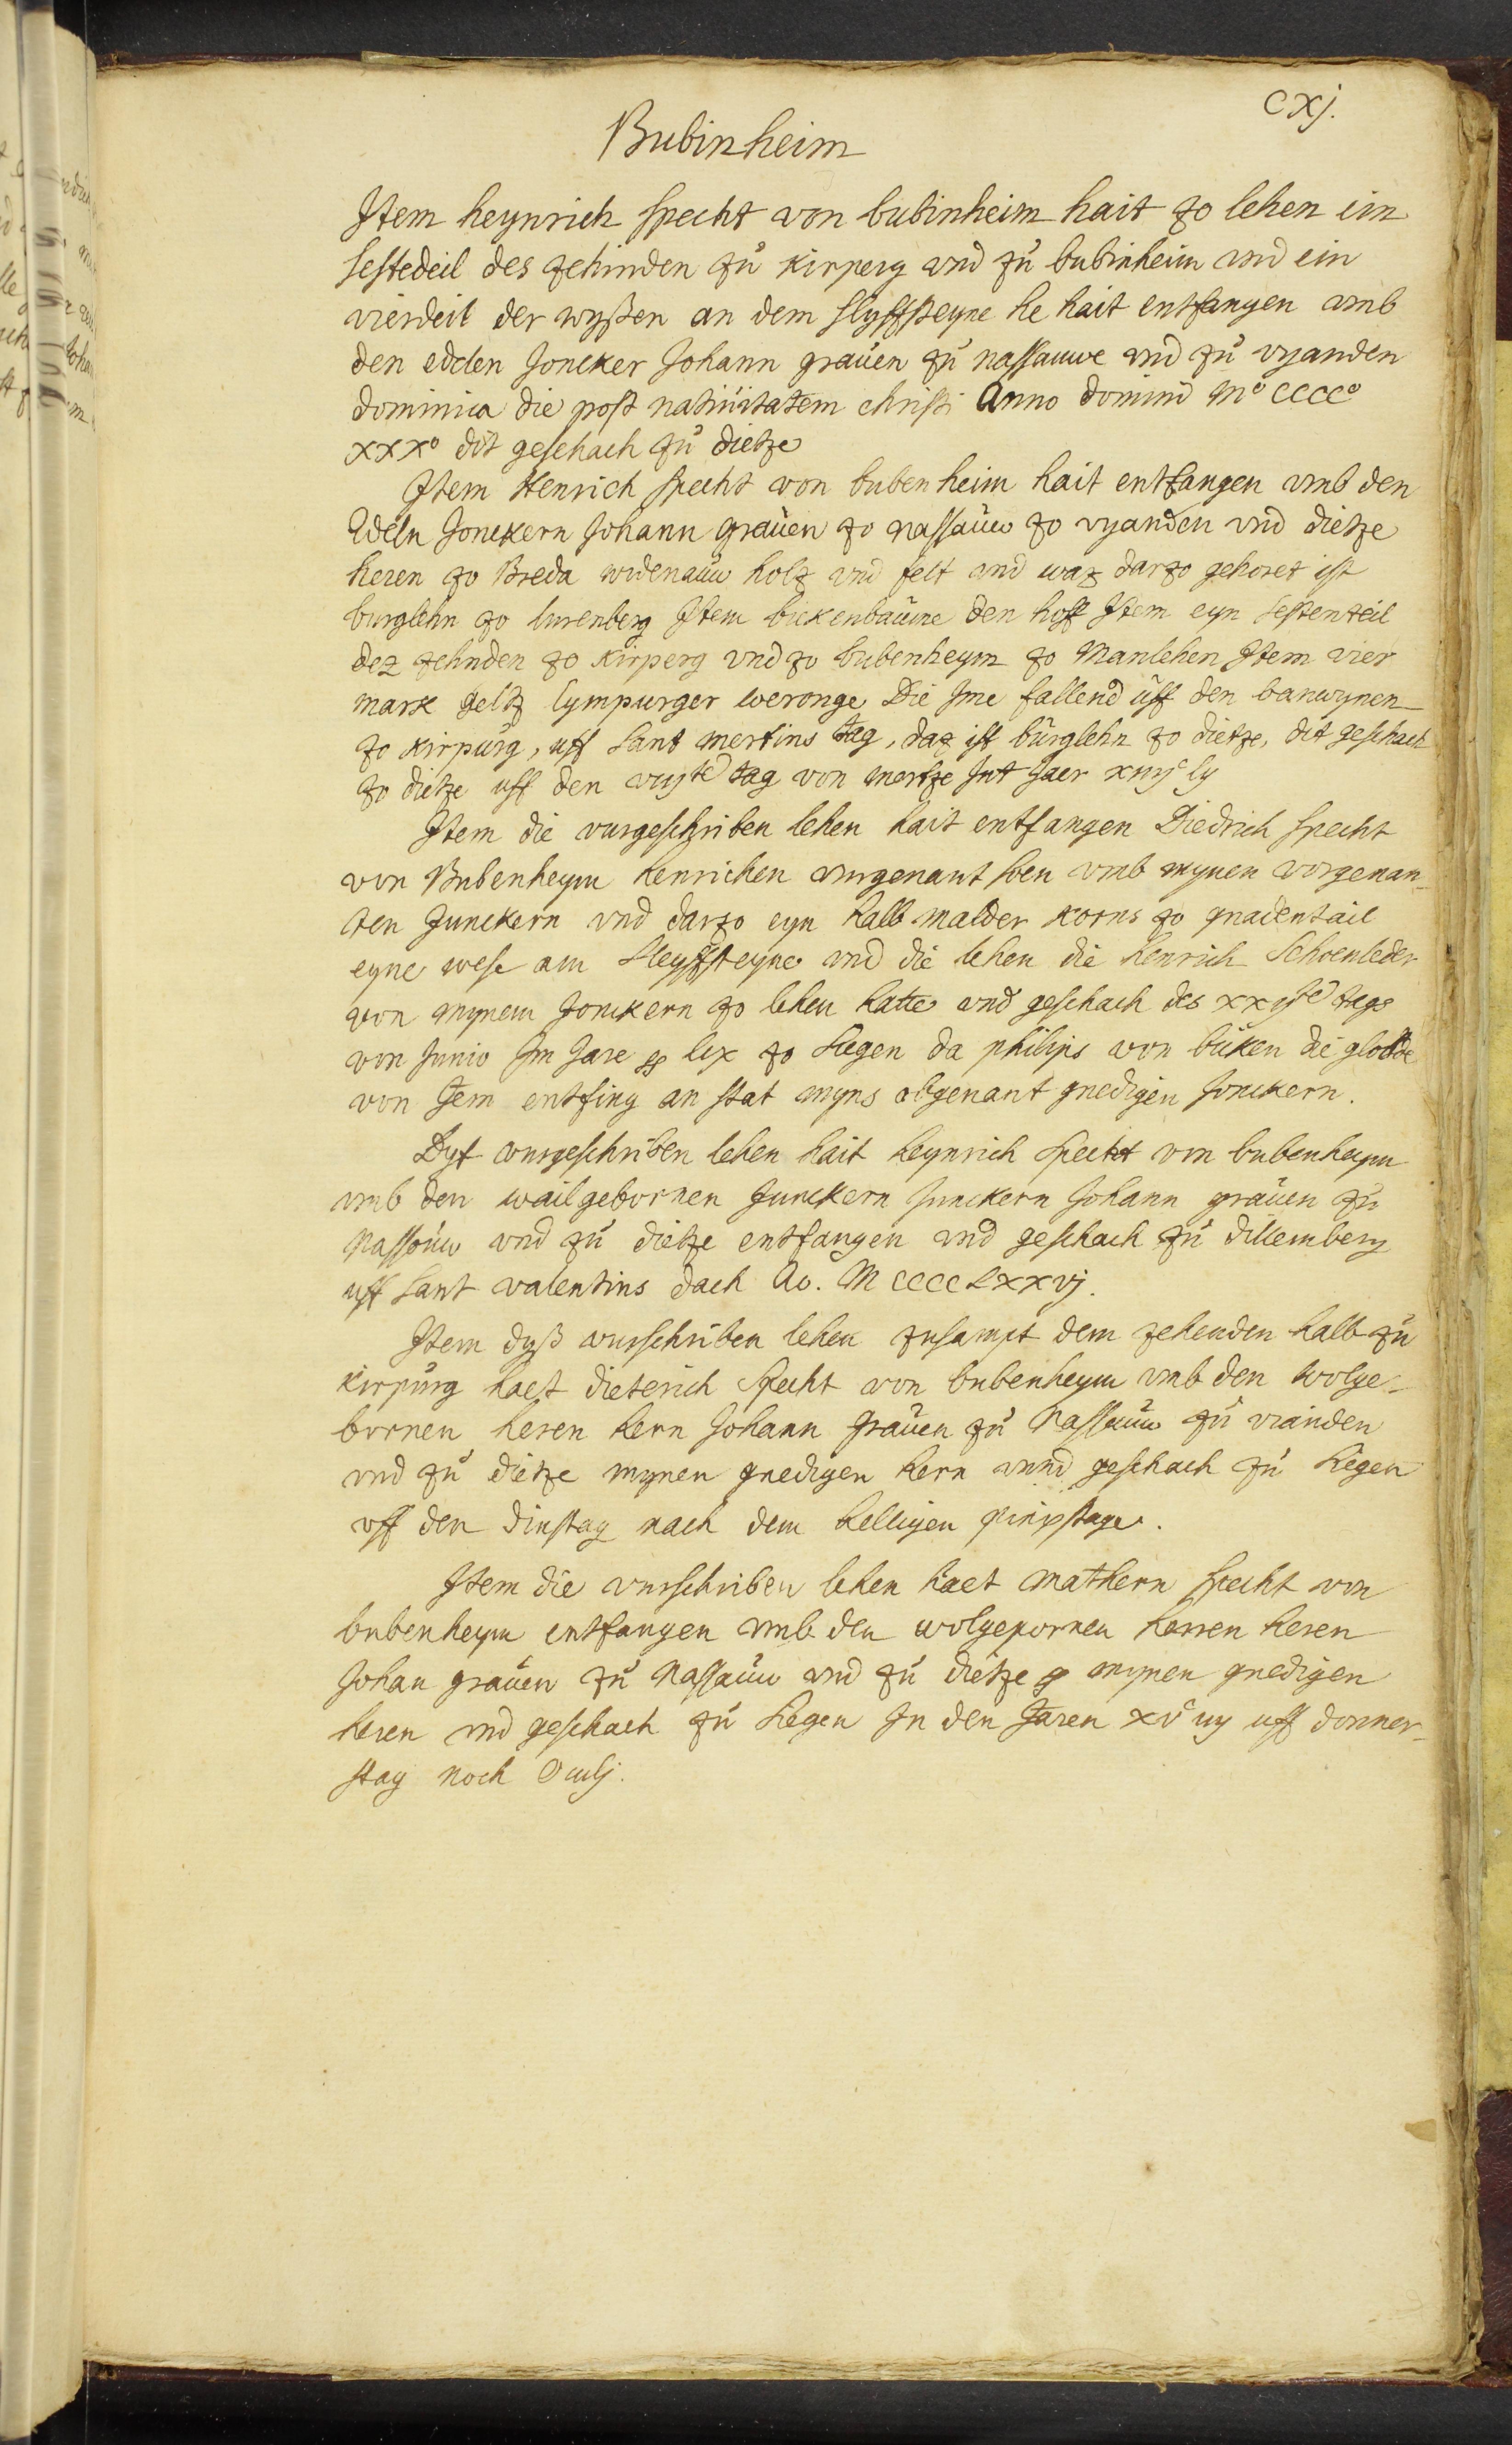 cxj.
Bubinheim
Item heynrich specht von bubinheim hait zo lehen ein
sestedeil des zehinden zů kirperg vnd zů bubinheim vnd ein
vierdeil der wyßen an dem slyffsteyne he hait entfangen vmb
den edelen Joncker Johann grauen zů nassauwe vnd zů vyanden
dominica die post natiuitatem christi Anno domini Mº CCCCº
xxxº dit geschach zů dietze
Item Henrich specht von bubenheim hait entfangen vmb den
Edeln Jonckern Johann grauen zo Nassauw zo vyanden vnd dietze
heren zo Breda widenauw holz vnd felt vnd waz darzo gehoret ist
burglehn zo lurenberg Item bickenbauwe den hoff Item eyn sestenteil
dez zehnden zo kirperg vnd zo bubenheym zo Manlehen Item vier
mark geltz lympurger weronge Die Ime fallend uff den banwynen
zo kirpurg, uff sant mertins tag, daz ist bürglehn zo dietze, dit geschach
zo dietze uff den tag von mertze Int Jaer xiiijc lj
Item die vurgeschriben lehen hait entfangen Diedrich specht
von Bubenheym henrichen vurgenant soen vmb mynen vorgenan-
ten Junckern vnd darzo eyn halb malder korns zo gnadentail
eyne wese am Sleyffsteyne vnd die lehen die henrich Schoenleder
von mynem Jonckern zo lehen hatte vnd geschach des tags
von Junio Im Jare lix zo Siegen da philips von bicken die globde
von Jem entfing an stat myns obgenant gnedigen Jonckern.
Dyt vurgeschriben lehen hait heynrich specht von bubenheym
vmb den wailgebornen Junckern Junckern Johann grauen zů
Nassouw vnd zů dietze entfangen vnd geschach zů dillemberg
uff sant valentins dach Ao. M CCCC Lxxvj.
Item dyß vurschriben lehen zusampt dem zehenden halb zů
kirpurg haet dieterich specht von bubenheym vmb den wolge-
bornen heren hern Johann Grauen zů Nassauw zů vianden
vnd zů dietze mynen gnedigen hern vnnd geschach zů siegen
vff den dinstag nach dem helligen pinxstage.
Item die vurschriben lehen haet mathern specht von
bubenheym entfangen vmb den wolgepornen herren heren
Johan grauen zů Nassauw vnd zů dietze mynen gnedigen
heren vnd geschach zů siegen In den Jaren xvc iij uff donner-
stag noch Oculj.